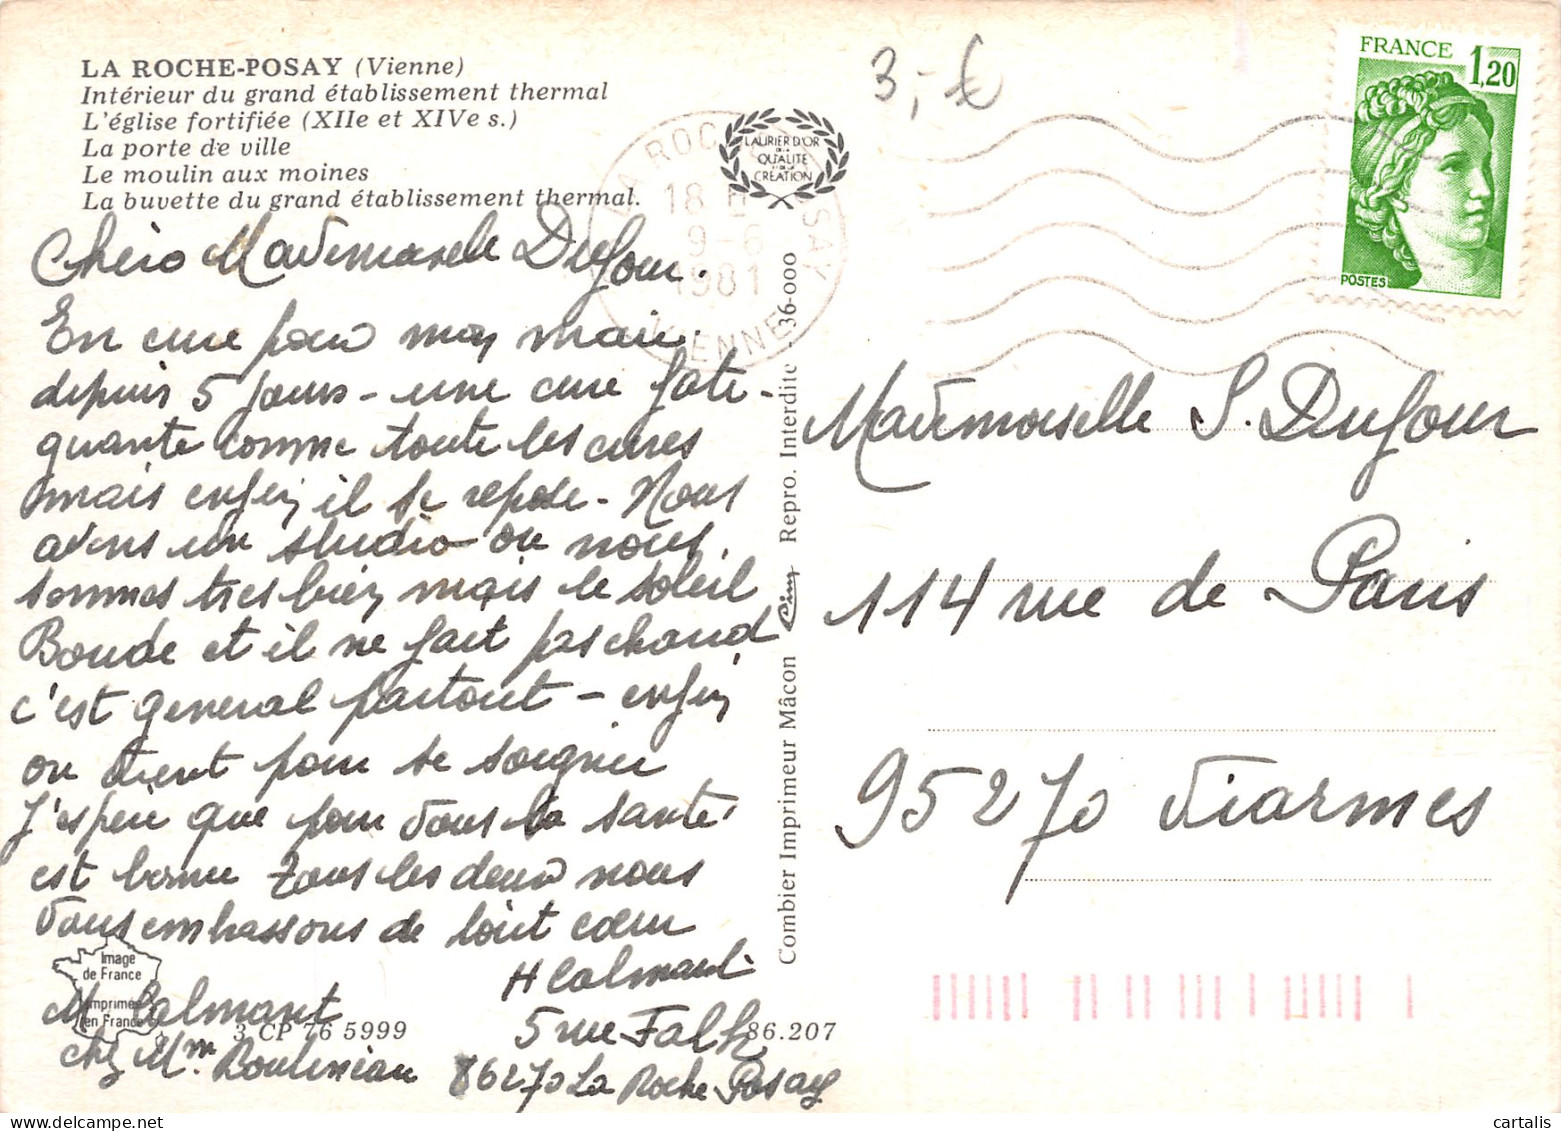 LA ROCHE-POSAY (Vienne)
Intérieur du grand établissement thermal
L'église fortifiée (XIIe et XIVe s.)
La porte de ville
Le moulin aux moines
La buvette du grand établissement thermal.
3,-€
LAURIER D'OR
DE LA
QUALITÉ
CRÉATION
LA ROCHE POSAY
18 H
9-6
1981
VIENNE
FRANCE 1,20
POSTES
Mademoiselle Dufour.
En cure pour mon mari
depuis 5 jours - une cure fati-
quante comme toute les cures
mais enfin il se repose - Nous
avons un studio ou nous
sommes tres bien mais le soleil
Boude et il ne fait pas chaud
c'est general partout - enfin
on vient pour se soigner
J'espere que pour vous la santé
est bonne Tous les deux nous
vous embrassons de tout cœur
H Calmant
M Calmant
chez Mm
5 rue
86270 La Roche Posay
Image
de France
Imprimé
en France
3 CP 76 5999
86.207
Combier Imprimeur Mâcon Cim Repro. Interdite 36-000
Mademoiselle S. Dufour
114 rue de Paris
95270 Viarmes
cartalis